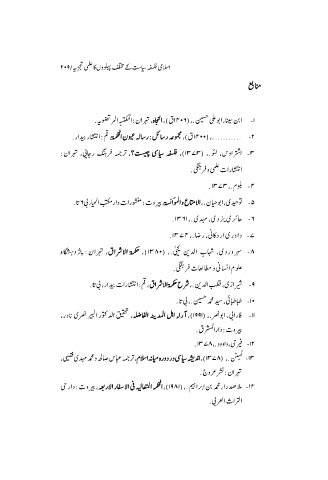 اسلامی فلسفہ سیاست کے مختلف پہلوؤں کا علمی تجزیہ/ ۲۰۹
منابع
۱۔ ابن سینا، ابو علی حسین۔، (۱۴۰۶ق)، النجاہ، تہران: المکتبۃ المرتضویہ۔
۲۔ ...........، (۱۴۰۰ق)، مجموعہ رسائل: رسالہ عیون الحکمۃ، قم: انتشار بیدار۔
۳۔ اشتراوس، لئو۔، (۱۳۷۳)، فلسفہ سیاسی چیست؟، ترجمہ فرہنگ رجائی، تہران:
انتشارات علمی و فرہنگی۔
۴۔ بلوم۔، ۱۳۷۳۔
۵۔ توحیدی، ابوحیان۔، الامتاع والموانسۃ، بیروت: منشورات دار مکتب الحیاۃ، بی تا۔
۶۔ حائری یزدی، مہدی۔، ۱۳۶۱۔
۷۔ داوری اردکانی، رضا۔، ۱۳۷۴۔
۸۔ سہروردی، شہاب الدین یحیٰ۔، (۱۳۸۰)، حکمۃ الاشراق، تہران: پژوہشگاہ
علوم انسانی و مطالعات فرہنگی۔
۹۔ شیرازی، قطب الدین۔، شرح حکمۃ الاشراق، قم: انتشارات بیدار، بی تا۔
۱۰۔ طباطبائی، سید محمد حسین۔، بی تا۔
۱۱۔ فارابی، ابونصر۔، (۱۹۹۱)، آراء اہل المدینۃ الفاضلہ، تحقیق الدکتور البیر نصری نادر،
بیروت: دار المشرق۔
۱۲۔ فیرحی، داوود۔، ۱۳۷۸۔
۱۳۔ لمبٹن۔، (۱۳۷۸)، اندیشہ سیاسی در دورہ میانہ اسلام، ترجمہ عباس صالحی و محمد مہدی فقیہی،
تہران: نشر عروج۔
۱۴۔ ملا صدرا، محمد بن ابراہیم۔، (۱۹۸۱)، الحکمۃ المتعالیہ فی الاسفار الاربعہ، بیروت: دار احی
التراث العربی۔